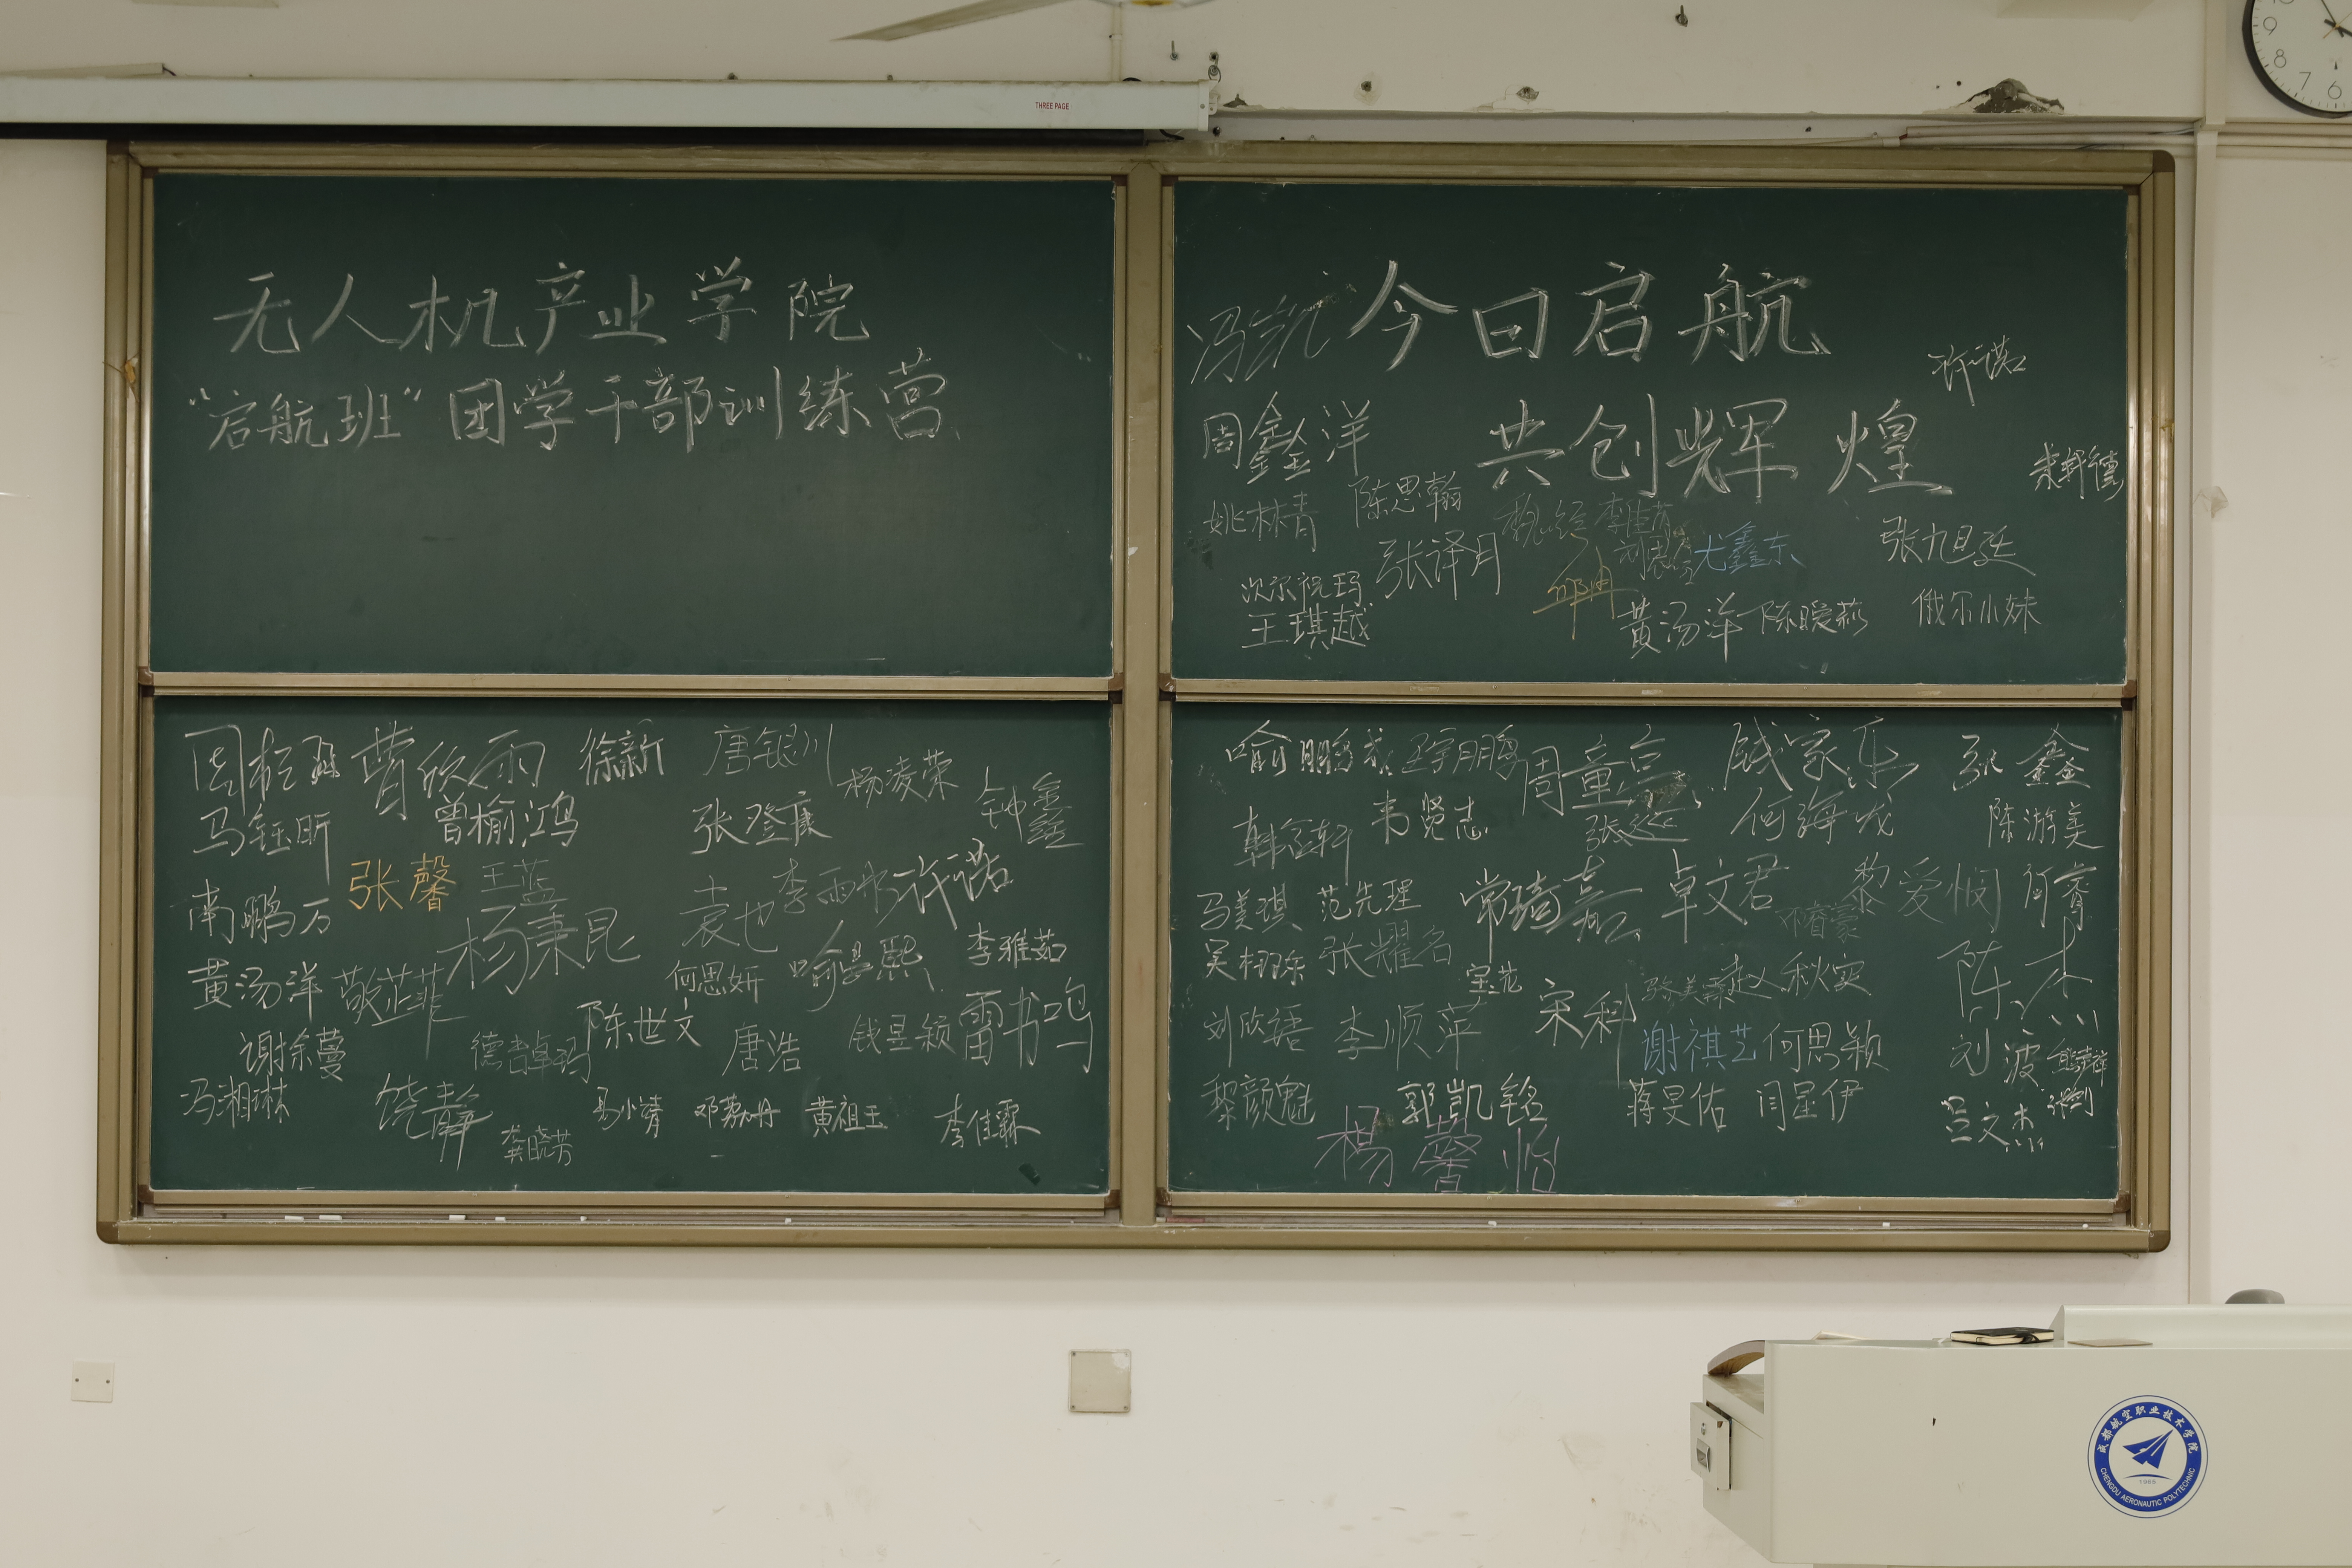 THREE PAGE
无人机产业学院
“启航班”团学干部训练营
今日启航
共创辉煌
冯凯
许诺
周鑫洋
姚林青
陈思翰
张译月
尤鑫东
张九旦廷
次尔祝玛
王琪越
黄汤洋
陈暧荻
俄尔小妹
曹欣雨
徐新
唐银川
杨凌荣
钟鑫
马钰昕
曾榆鸿
张登康
张馨
王蓝
李雨书
许诺
南鹏万
杨秉昆
袁也
李雅茹
黄汤洋
敬芷菲
何思妍
陈世文
唐浩
钱昱颖
雷书鸣
谢徐蔓
德吉卓玛
冯湘琳
饶静
龚晓芳
易小清
黄祖玉
李佳霖
喻鹏成
周童亮
钱家乐
张鑫
韩金轩
韦贤志
何海龙
陈游美
马美琪
范先理
常琦嘉
卓文君
黎爱悯
何睿
邓睿豪
吴栩东
张耀名
宋科
秋实
陈杰
刘欣语
李顺萍
谢祺艺
何思颖
刘波
黎颜魁
郭凯铭
蒋旻佑
闫星伊
吕文杰
杨馨怡
9
8
7
6
成都航空职业技术学院
1965
CHENGDU AERONAUTIC POLYTECHNIC